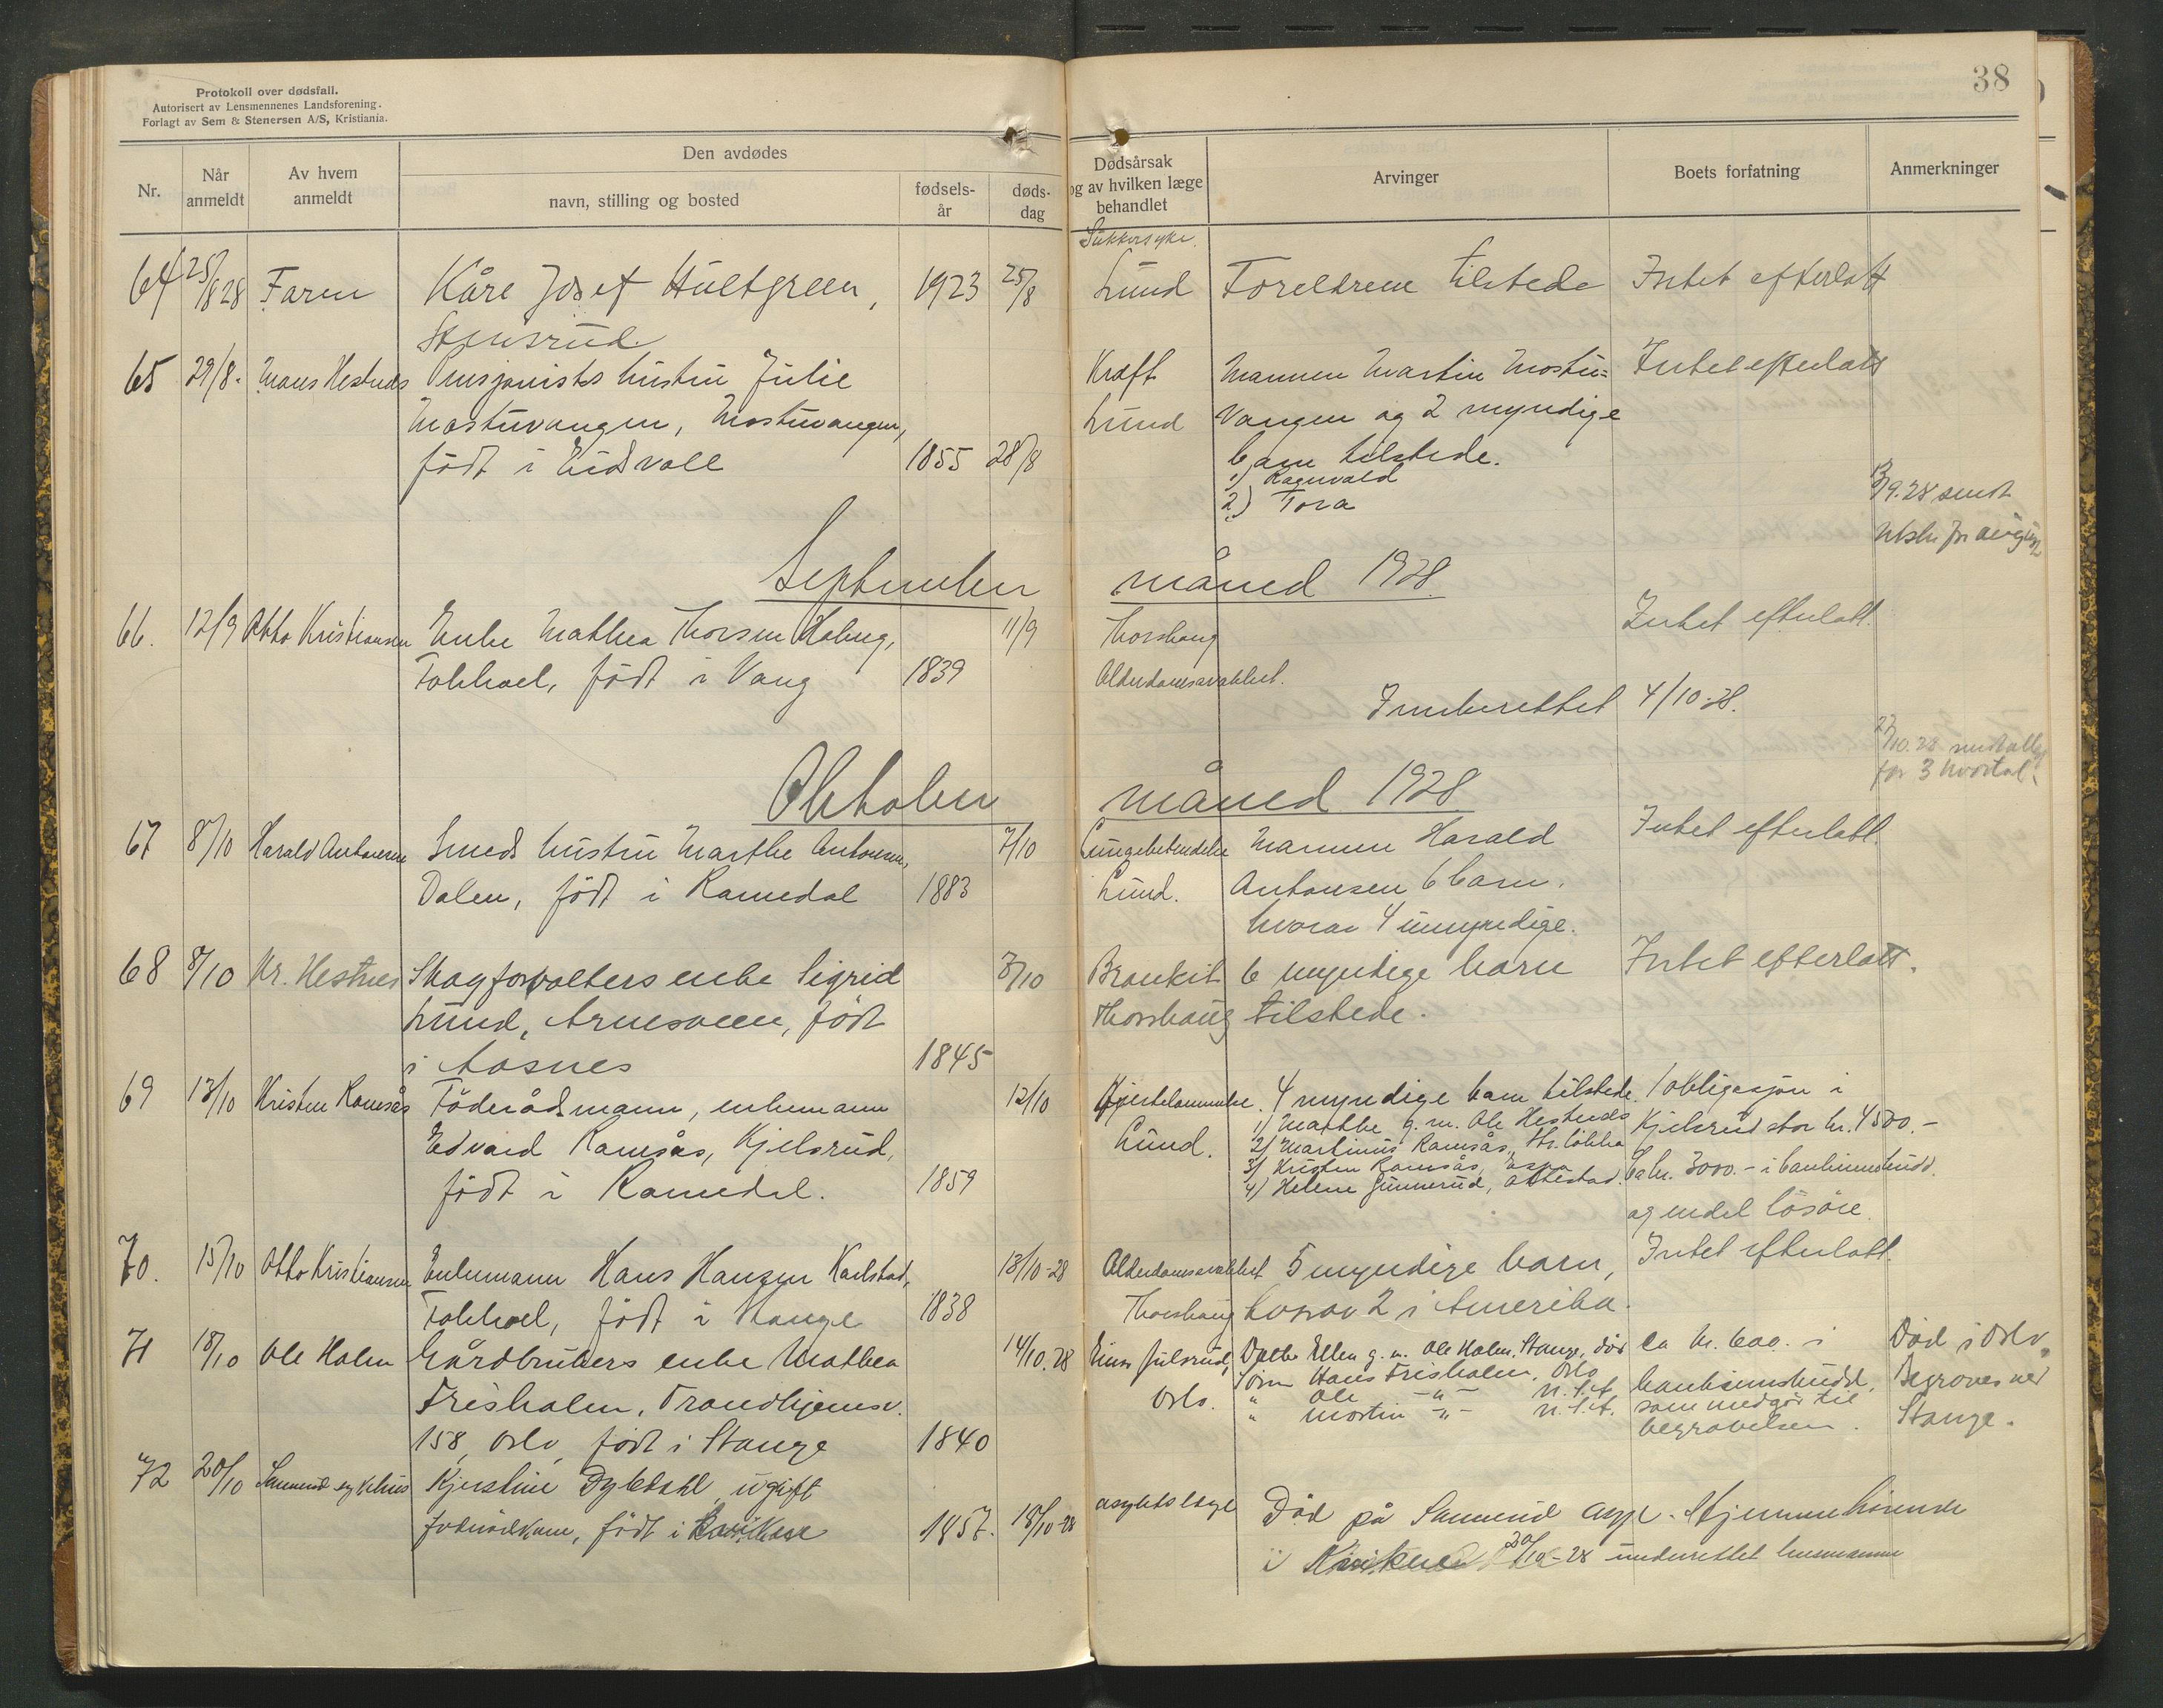 38
Protokoll over dødsfall.
Autorisert av Lensmennenes Landsforening.
Forlagt av Sem & Stenersen A/S, Kristiania.
Nr.
Når anmeldt
Av hvem anmeldt
Den avdødes
navn, stilling og bosted
fødsels-år
døds-dag
Dødsårsak
og av hvilken læge
behandlet
Arvinger
Boets forfatning
Anmerkninger
Sukkersyke.
64 25/8 28 Faren Kåre Josef Hultgreen, 1923 25/8 Lund Foreldrene tilstede Intet efterlatt
Stensrud
65 29/8. Hestnes Pensjonists hustru Julie Kræft Mannen Martin Mostu= Intet efterlatt
Mostuvangen, Mostuvangen, Lund vangen og 2 myndige
født i Eidsvoll 1855 28/8 barn tilstede.
1) Ragnvald
2) Tora
9.28 sendt
September måned 1928.
66. 12/9 Otto Kristiansen Enke Mathea Thorsen Haberg, 11/9 Thorshaug Intet efterlatt.
født i Vang 1839 Alderdomsavakket.
Innberettet 4/10-28.
27/10.28
for 3 kvartal.
Oktober måned 1928
67 8/10 Harald Antonsen Smeds hustru Marthe Antonsen, 7/10 Lungebetendelse Mannen Harald Intet efterlatt.
Dalen, født i Romedal 1883 Lund. Antonsen 6 barn.
hvorav 4 umyndige.
68 8/10 Kr. Hestnes Skogforvalters enke Sigrid 7/10 Bronkit 6 myndige barn Intet efterlatt.
Lund, Arnesveen, født Thorshaug tilstede.
i Aasnes 1845
69 13/10 Kristen Ramsås Föderådsmann, enkemann 12/10 Hjertelammelse. 4 myndige barn tilstede. 1 obligasjon i
1) Marthe g. m. Ole Hestnes Kjelsrud stor kr. 4500.-
Edvard Ramsås, Kjelsrud, Lund. 2) Martinus Ramsås,
3) Kristen Ramsås, Espa Ca kr. 3000.- i bankinnskudd.
født i Romedal. 1859 4) Helene Gunnerud,
og endel lösöre.
70. 15/10 Otto Kristiansen Enkemann Hans Hansen Karlstad, 13/10-28 Alderdomsavakket 5 myndige barn, Intet efterlatt.
født i Stange 1838 Thorshaug hvorav 2 i Amerika.
71 18/10 Ole Holen Gårdbrukers enke Mathea 14/10.28 Einar Julsrud, Datter Ellen g. m. Ole Holen, Stange, ca kr. 600. i Död i Oslo,
Frisholen, Trondhjemsv. Oslo. Sönn Hans Frisholen, Oslo bankinnskudd, Begraves ved
" Ole -"- som medgår til
158, Oslo, født i Stange 1840 " Martin -"- begravelsen. Stange.
72 20/10 Sanerud sykehus Kjerstine Dybdahl, ugift asylets læge Död på Sanerud asyl. Hjemmehörende
født i 1857. 18/10-28 i 20/10-28 underrettet lensmannen